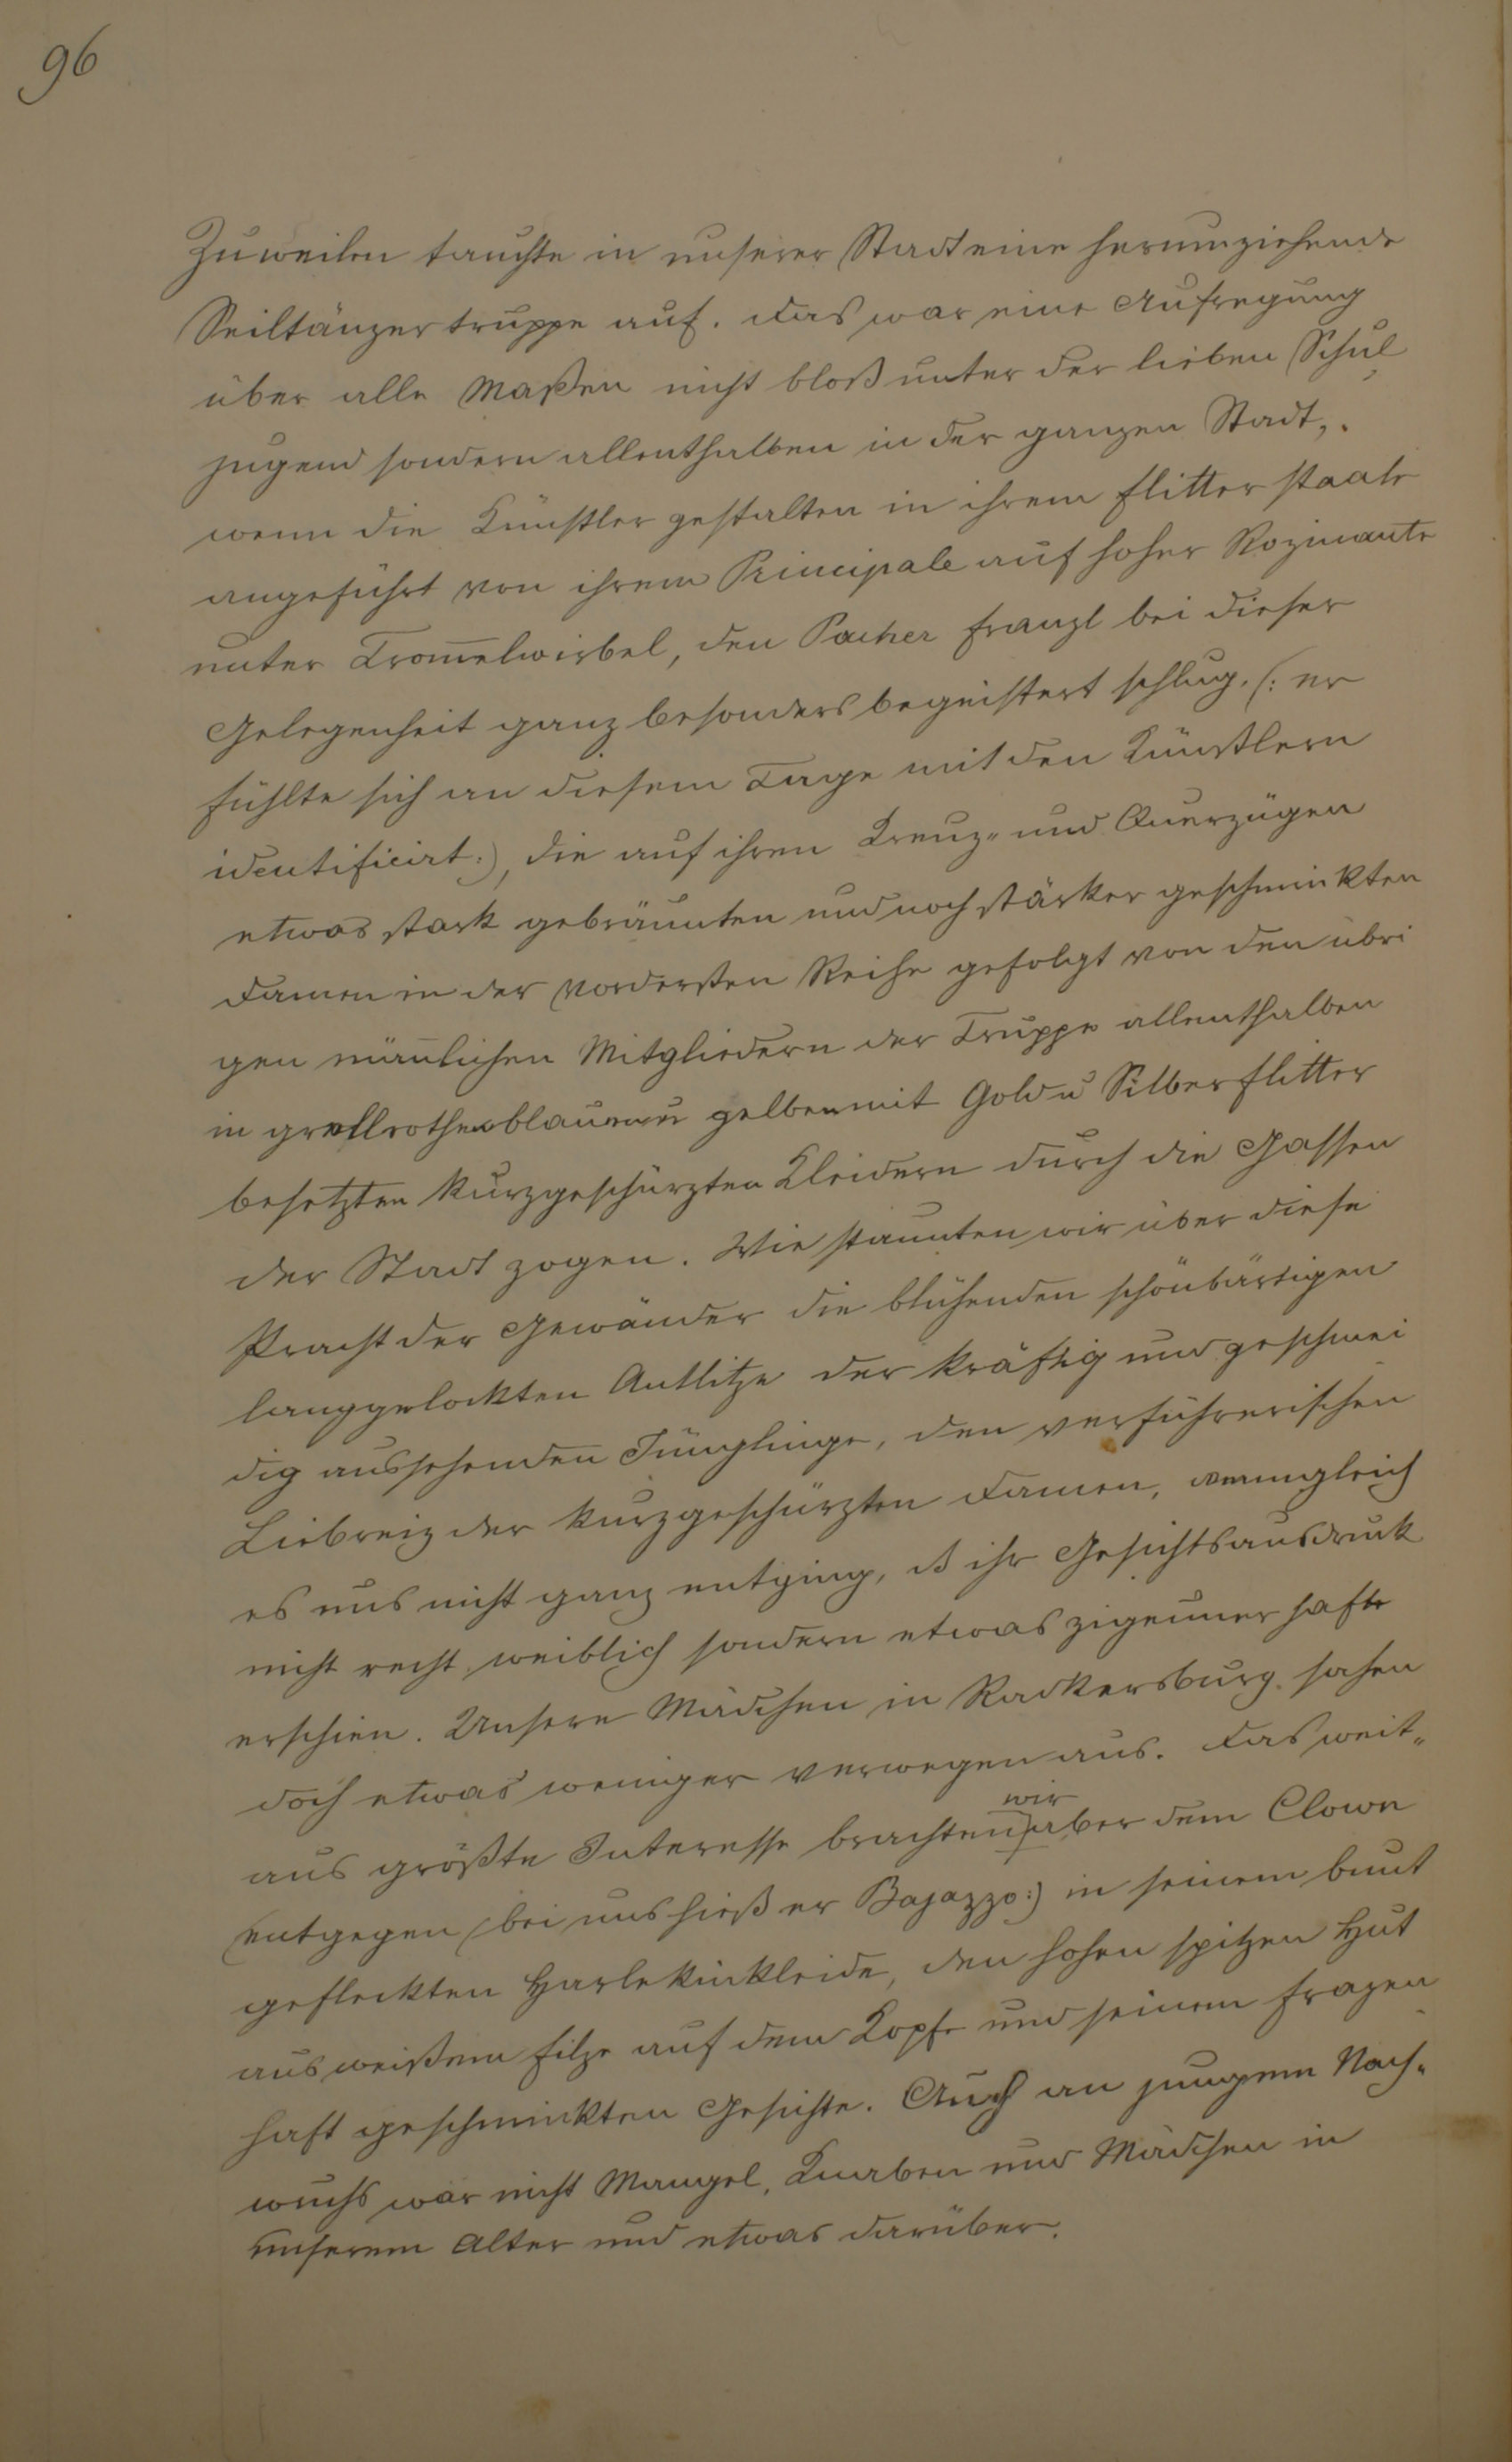 96
Zuweilen tauchte in unserer Stadt eine herumziehende
Seiltänzertruppe auf. Das war eine Aufregung
über alle Maßen nicht bloß unter der lieben Schul
jugend sondern allenthalben in der ganzen Stadt,.
wenn die Künstlergestalten in ihrem Flitterstaate
angeführt von ihrem Principale auf hoher Rozinante
unter Trom̅elwirbel, den Pacher Franzl bei dieser
Gelegenheit ganz besonders begeistert schlug. (: er
fühlte sich an diesem Tage mit den Künstlern
identificirt:), die auf ihren Kreuz- und Querzügen
etwas stark gebräunten und noch stärker geschminkten
Damen in der vordersten Reihe gefolgt von den übri
gen män̅lichen Mitgliedern der Truppe allenthalben
in grellrothen blauen u gelben mit Gold u Silberflitter
besetzten kurzgeschürzten Kleidern durch die Gassen
der Stadt zogen. Wie staunten wir über diese
Pracht der Gewänder die blühenden schönbärtigen
langgelockten Antlitze der kräftig und geschmei
dig aussehenden Jünglinge, den verführerischen
Liebreiz der kurzgeschürzten Damen, wenngleich
es uns nicht ganz entging, ß ihr Gesichtsausdruck
nicht recht weiblich sondern etwas zigeunerhaft
erschien. Unsere Mädchen in Radkersburg sahen
doch etwas weniger verwegen aus. Das weit-
aus größte Interesse brachten wir aber dem Clown
entgegen (bei uns hieß er Bajazzo:) in seinem bunt
gefleckten Harlekinkleide, den hohen spitzen Hut
aus weißem Filze auf dem Kopfe und seinem fratzen
haft geschminkten Gesichte. Auch an jungem Nach-
wuchs war nicht Mangel, Knaben und Mädchen in
unserem Alter und etwas darüber.